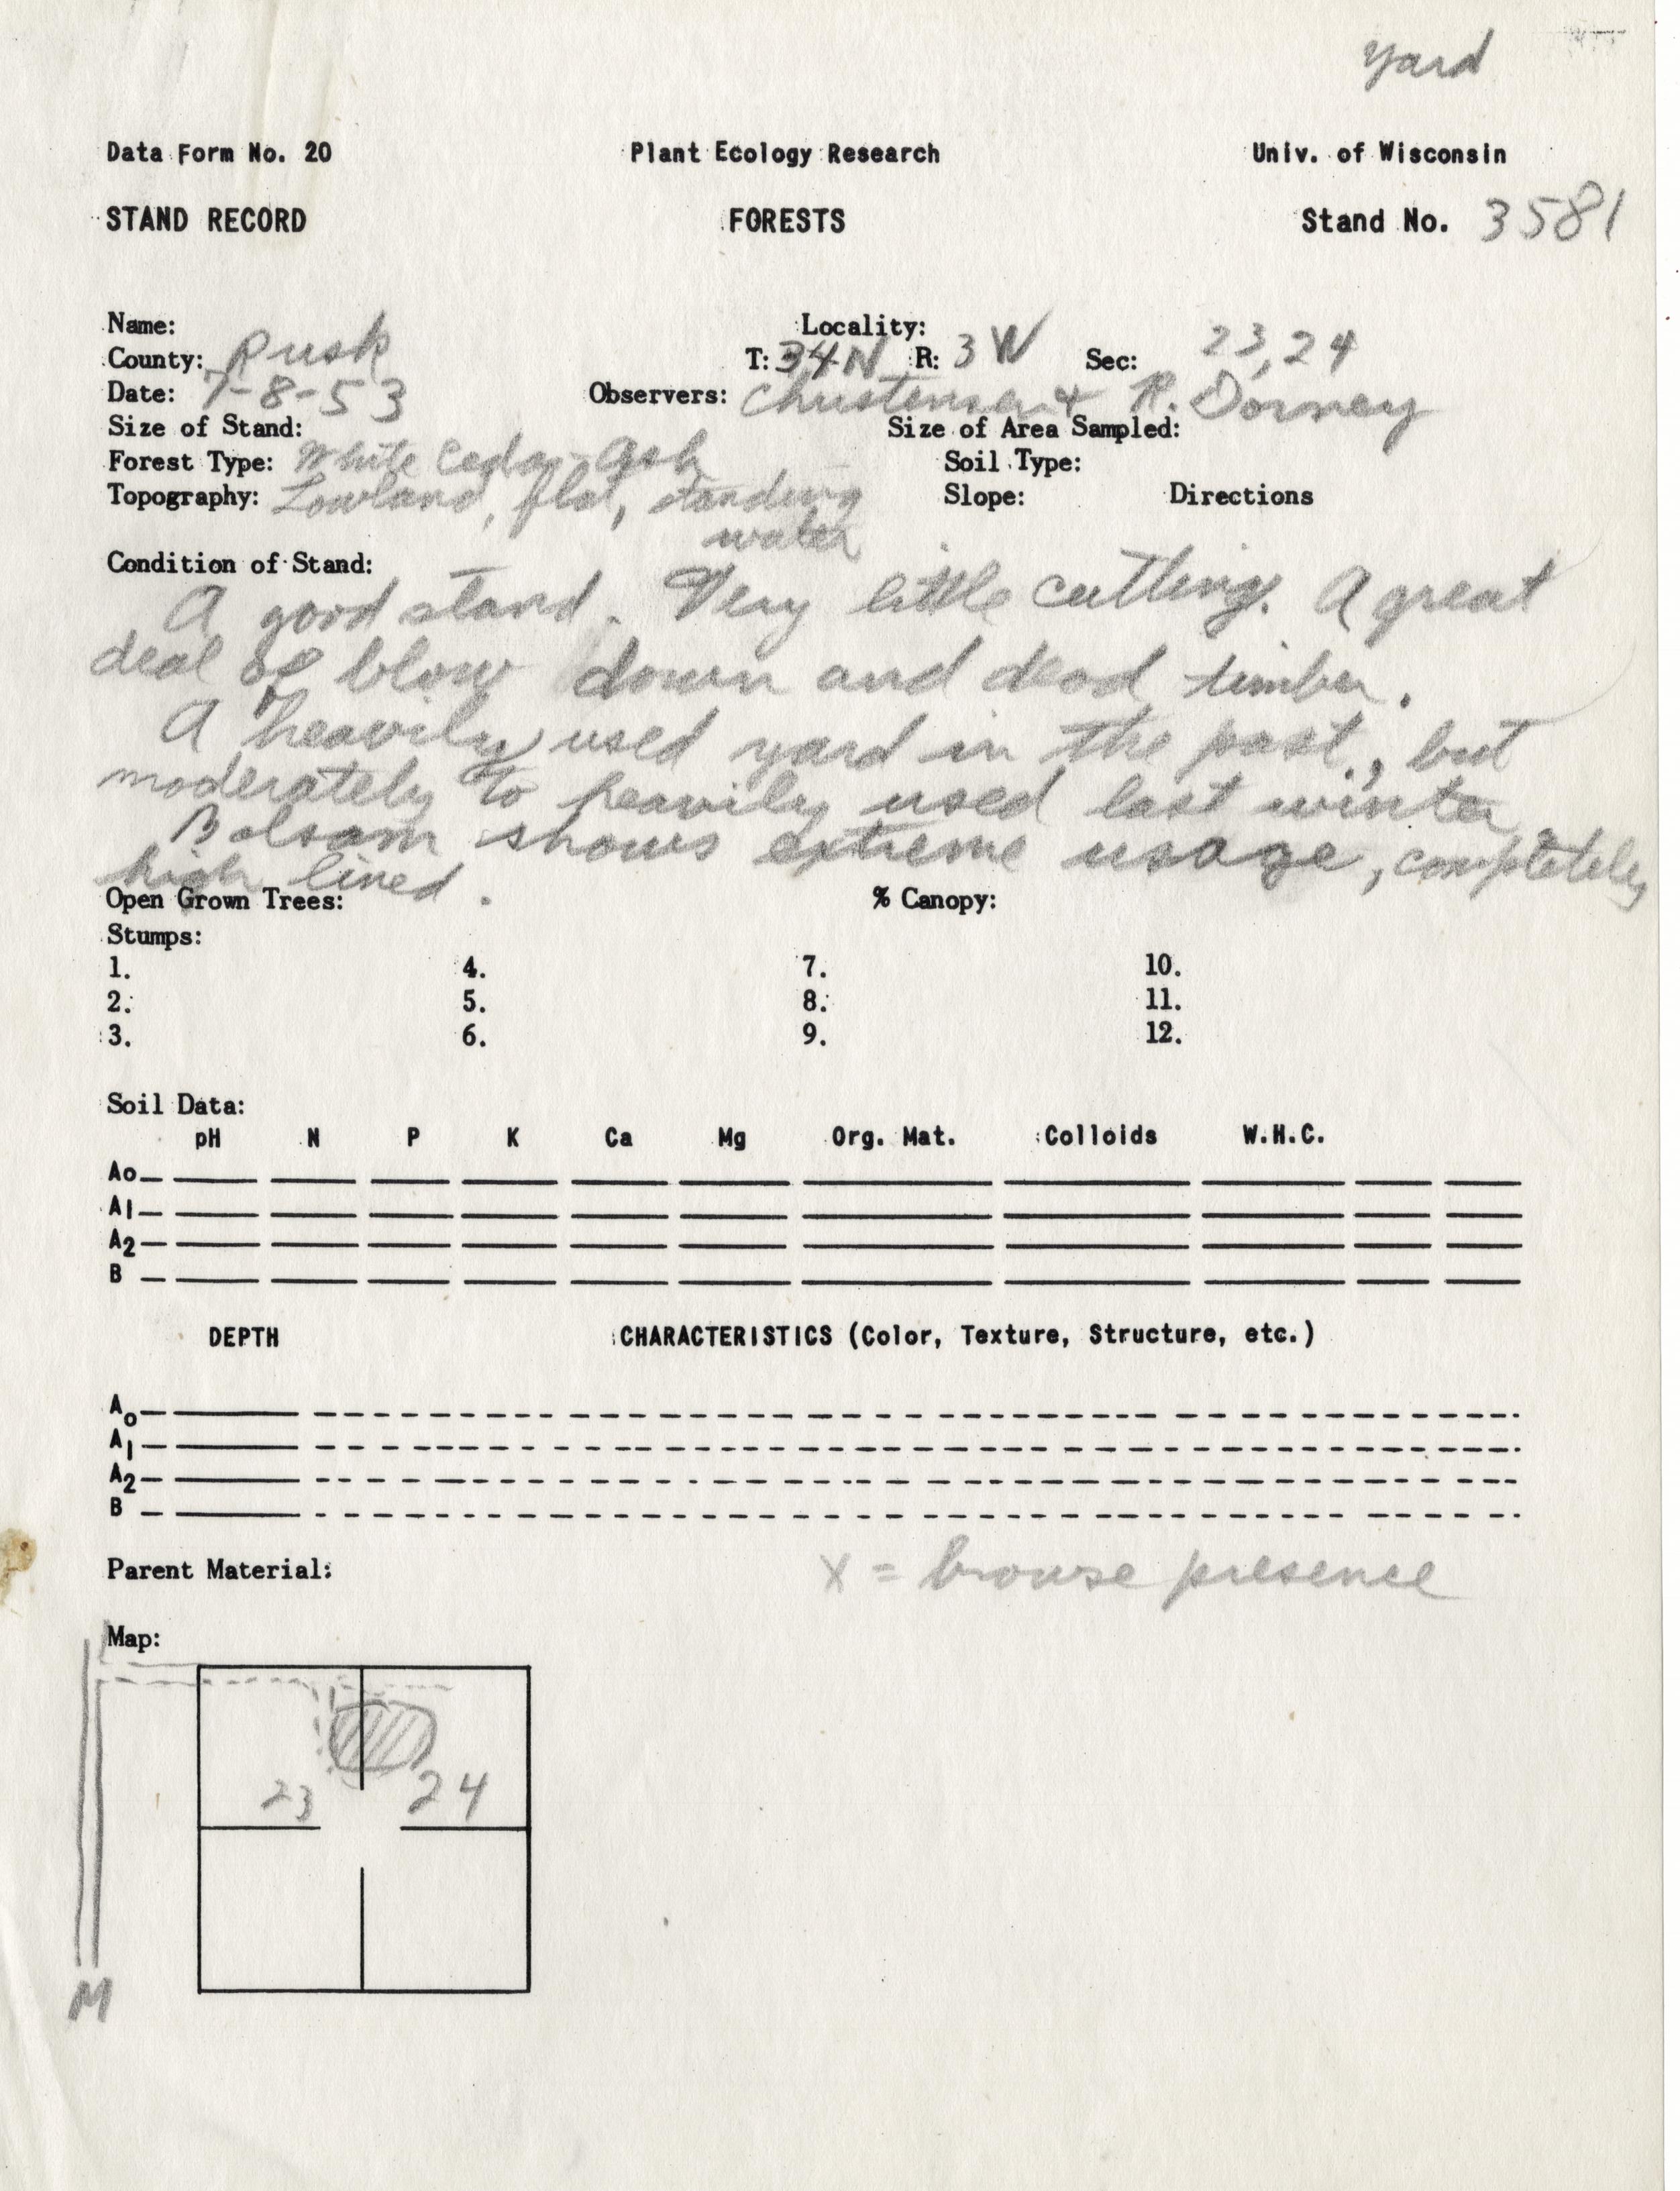 yard
Data Form No. 20 Plant Ecology Research Univ. of Wisconsin
STAND RECORD FORESTS Stand No. 3581
Name: Locality:
County: Rusk T: 34N R: 3W Sec: 23,24
Date: 7-8-53 Observers: Christensen & R. Dorney
Size of Stand: Size of Area Sampled:
Forest Type: White Cedar-Ash Soil Type:
Topography: Lowland, flat, standing Slope: Directions
water
Condition of Stand:
A good stand. Very little cutting. A great
deal of blow down and dead timber.
A heavily used yard in the past, but
moderately to heavily used last winter.
Balsam shows extreme usage, completely
high lined.
Open Grown Trees: % Canopy:
Stumps:
1. 4. 7. 10.
2. 5. 8. 11.
3. 6. 9. 12.
Soil Data:
pH N P K Ca Mg Org. Mat. Colloids W.H.C.
Ao
A1
A2
B
DEPTH CHARACTERISTICS (Color, Texture, Structure, etc.)
Ao
A1
A2
B
Parent Material: X = browse presence
Map:
23 24
M